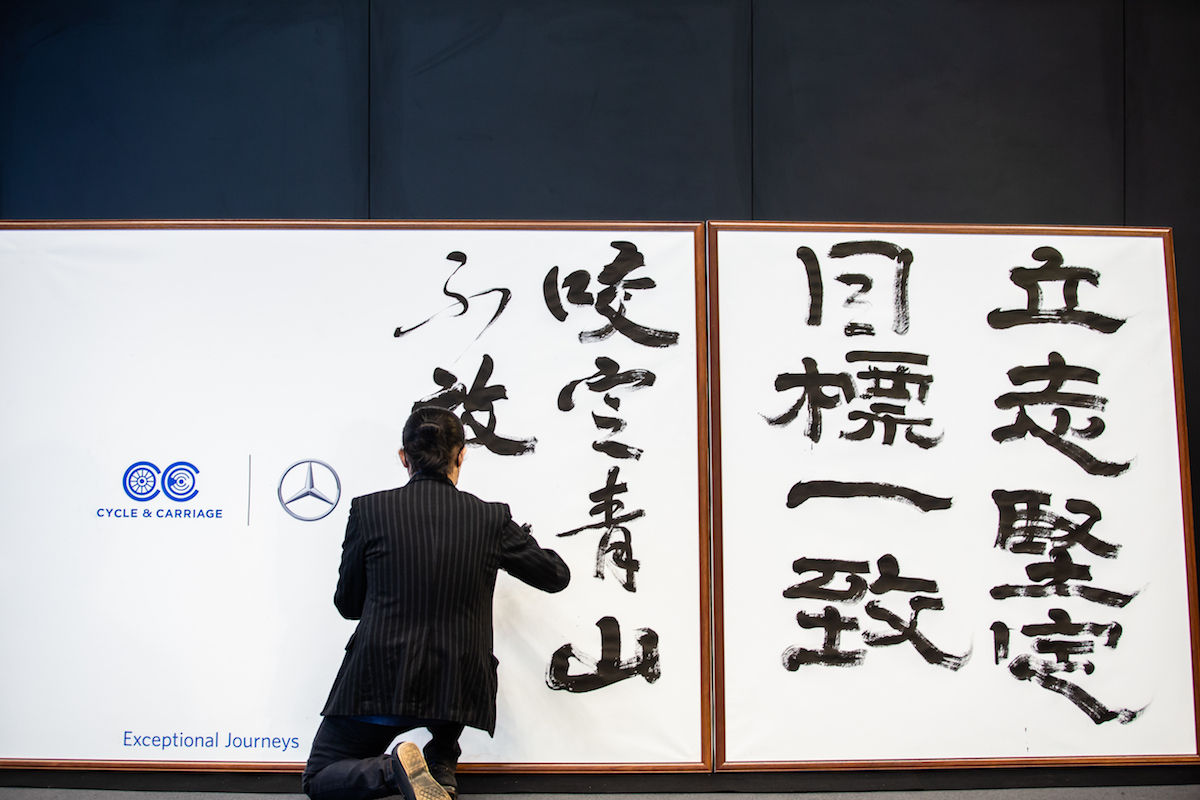 立志堅定
目標一致
咬定青山
不放
CYCLE & CARRIAGE
Exceptional Journeys